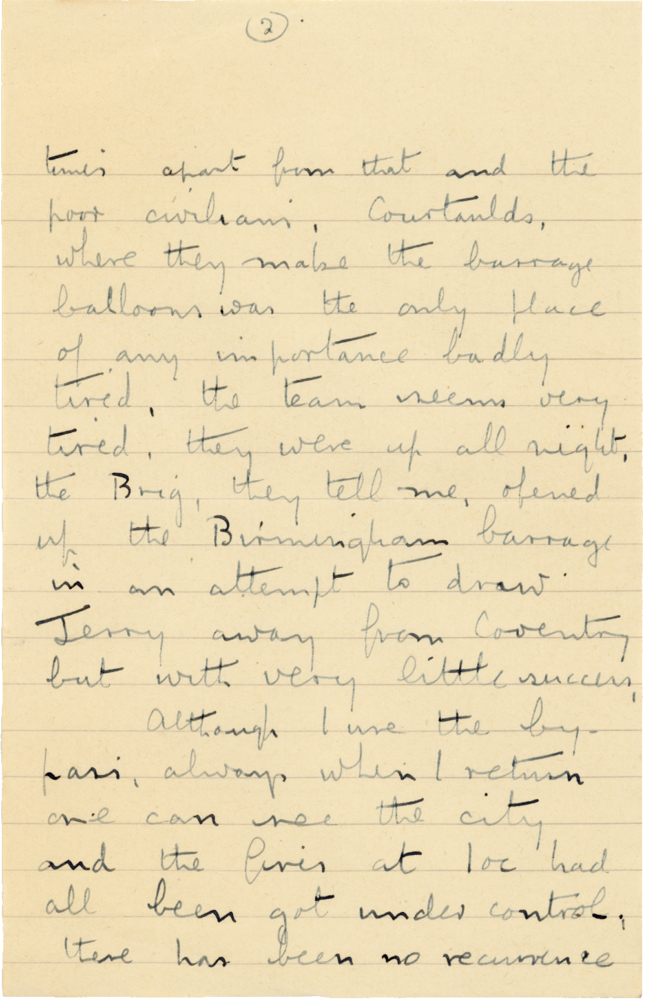 (2)
times apart from that and the
poor civilians, Courtaulds,
where they make the barrage
balloons was the only place
of any importance badly
tired, the team seems very
tired, they were up all night,
the Brig, they tell me, opened
up the Birmingham barrage
in an attempt to draw
Jerry away from Coventry
but with very little success,
Although I use the by-
pass, always when I return
one can see the city
and the fires at 10c had
all been got under control,
there has been no recurrence